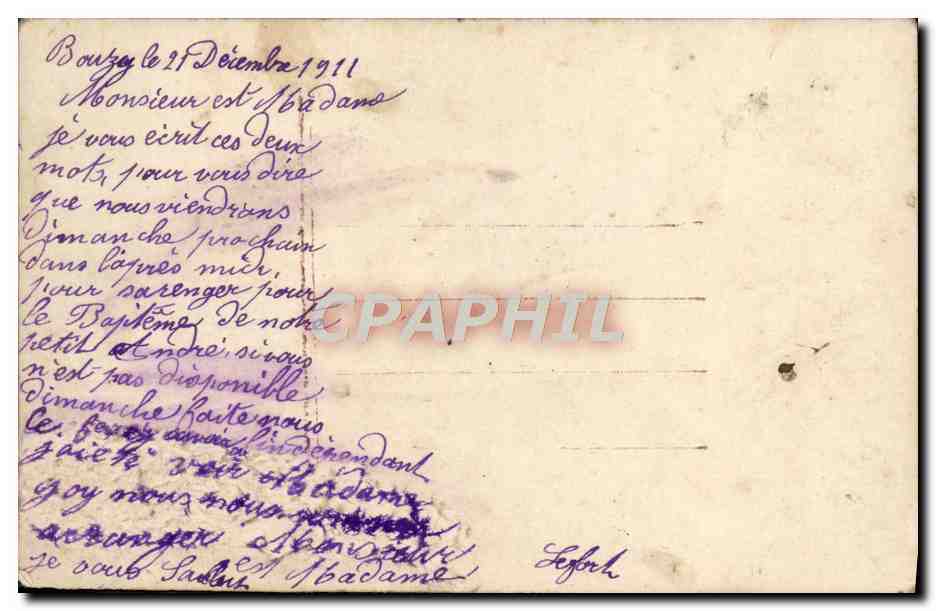 Bouzy le 21 Décembre 1911
Monsieur est Madame
je vous écrit ces deux
mots, pour vous dire
que nous viendrons
dimanche prochain
dans l'après midi,
pour sarenger pour
le Baptême de notre
petit André, si vous
n'est pas disponible
dimanche faite nous
le savoir l'indépendant
voir Madame
goy nous nous
arranger Monsieur
est Madame
je vous Salut
Leffort
CPAPHIL